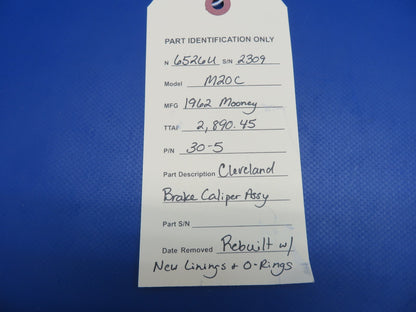 PART IDENTIFICATION ONLY
N 6526U S/N 2309
Model M20C
MFG 1962 Mooney
TTAF 2,890.45
P/N 30-5
Part Description Cleveland
Brake Caliper Assy
Part S/N
Date Removed Rebuilt w/
New Linings & O-Rings